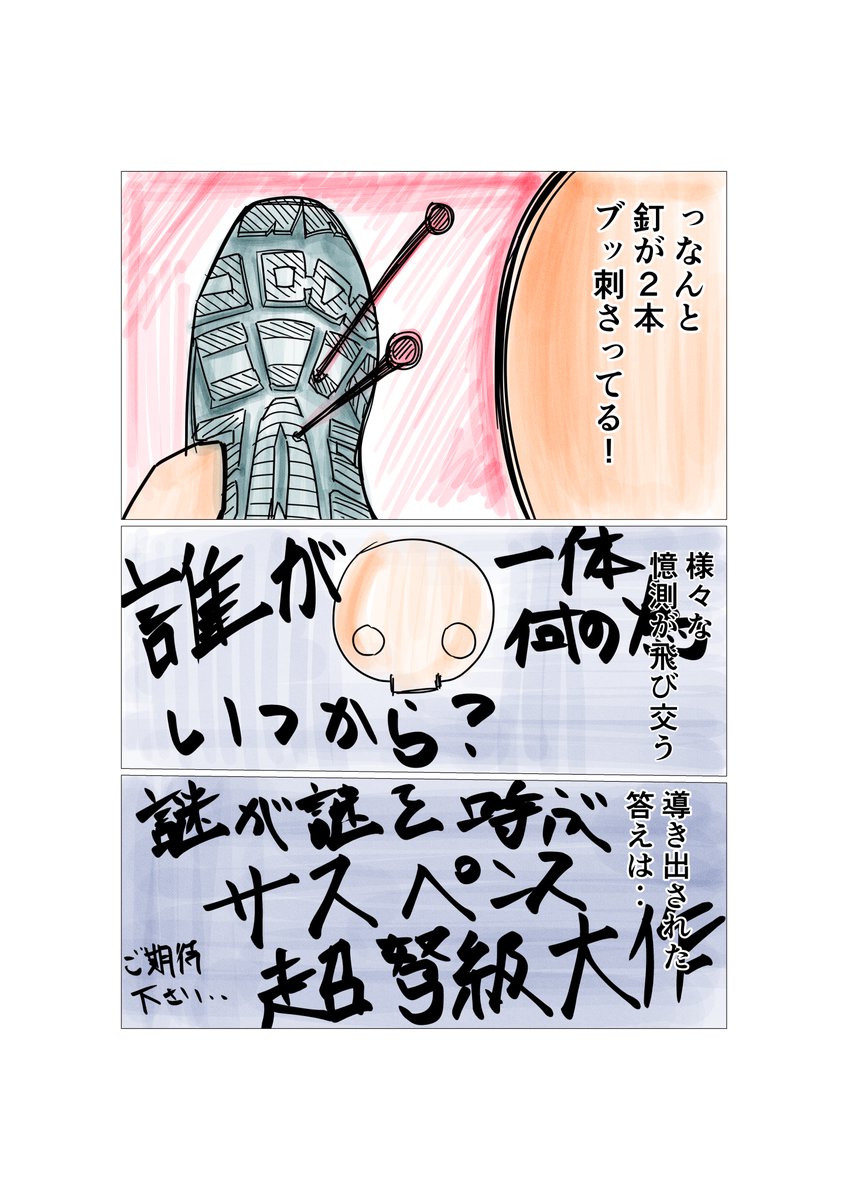 っなんと
釘が２本
ブッ刺さってる！
様々な
憶測が飛び交う
一体
何の為
誰が
いつから？
導き出された
答えは‥
謎が謎を呼ぶ
サスペンス
超弩級大作
ご期待
下さい‥